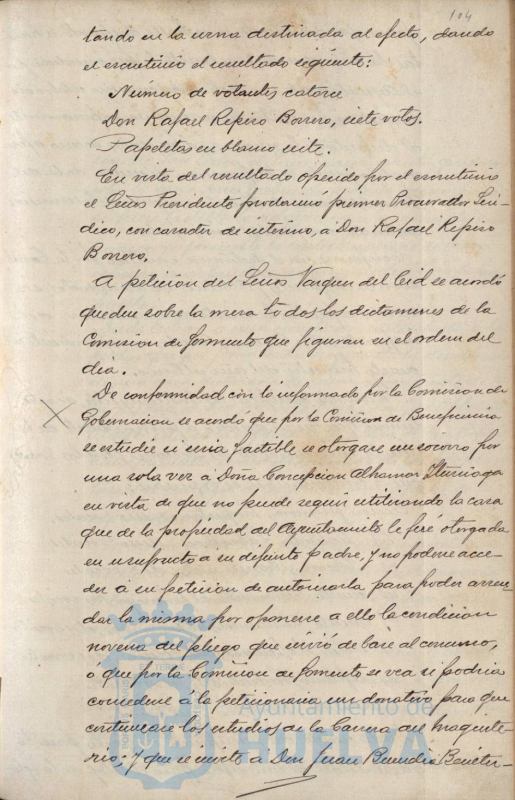 104
tando en la urna destinada al efecto, dando
el escrutinio el resultado siguiente:
Número de votantes catorce
Don Rafael Repiso Borrero, siete votos.
Papeletas en blanco siete.
En vista del resultado ofrecido por el escrutinio
el Señor Presidente proclamó primer Procurador Sin-
dico, con caracter de interino, á Don Rafael Repiso
Borrero.
A peticion del Señor Vazquez del Cid se acordó
queden sobre la mesa todos los dictamenes de la
Comision de Fomento que figuran en el orden del
dia.
De conformidad con lo informado por la Comision de
Gobernacion se acordó que por la Comision de Beneficencia
se estudie si seria factible se otorgase un socorro por
una sola vez á Doña Concepcion Alhamar Iturriaga
en vista de que no puede seguir utilizando la casa
que de la propiedad del Ayuntamiento le fue otorgada
en usufructo á su difunto padre, y no poderse acce-
der á su peticion de autorizarla para poder arren-
dar la misma por oponerse a ello la condicion
novena del pliego que sirvió de base al concurso,
ó que por la Comision de Fomento se vea si podria
concederse á la peticionaria un donativo para que
continuase los estudios de la Carrera del Magiste-
rio; y que se invite a Don Juan
Ayuntamiento de
HUELVA